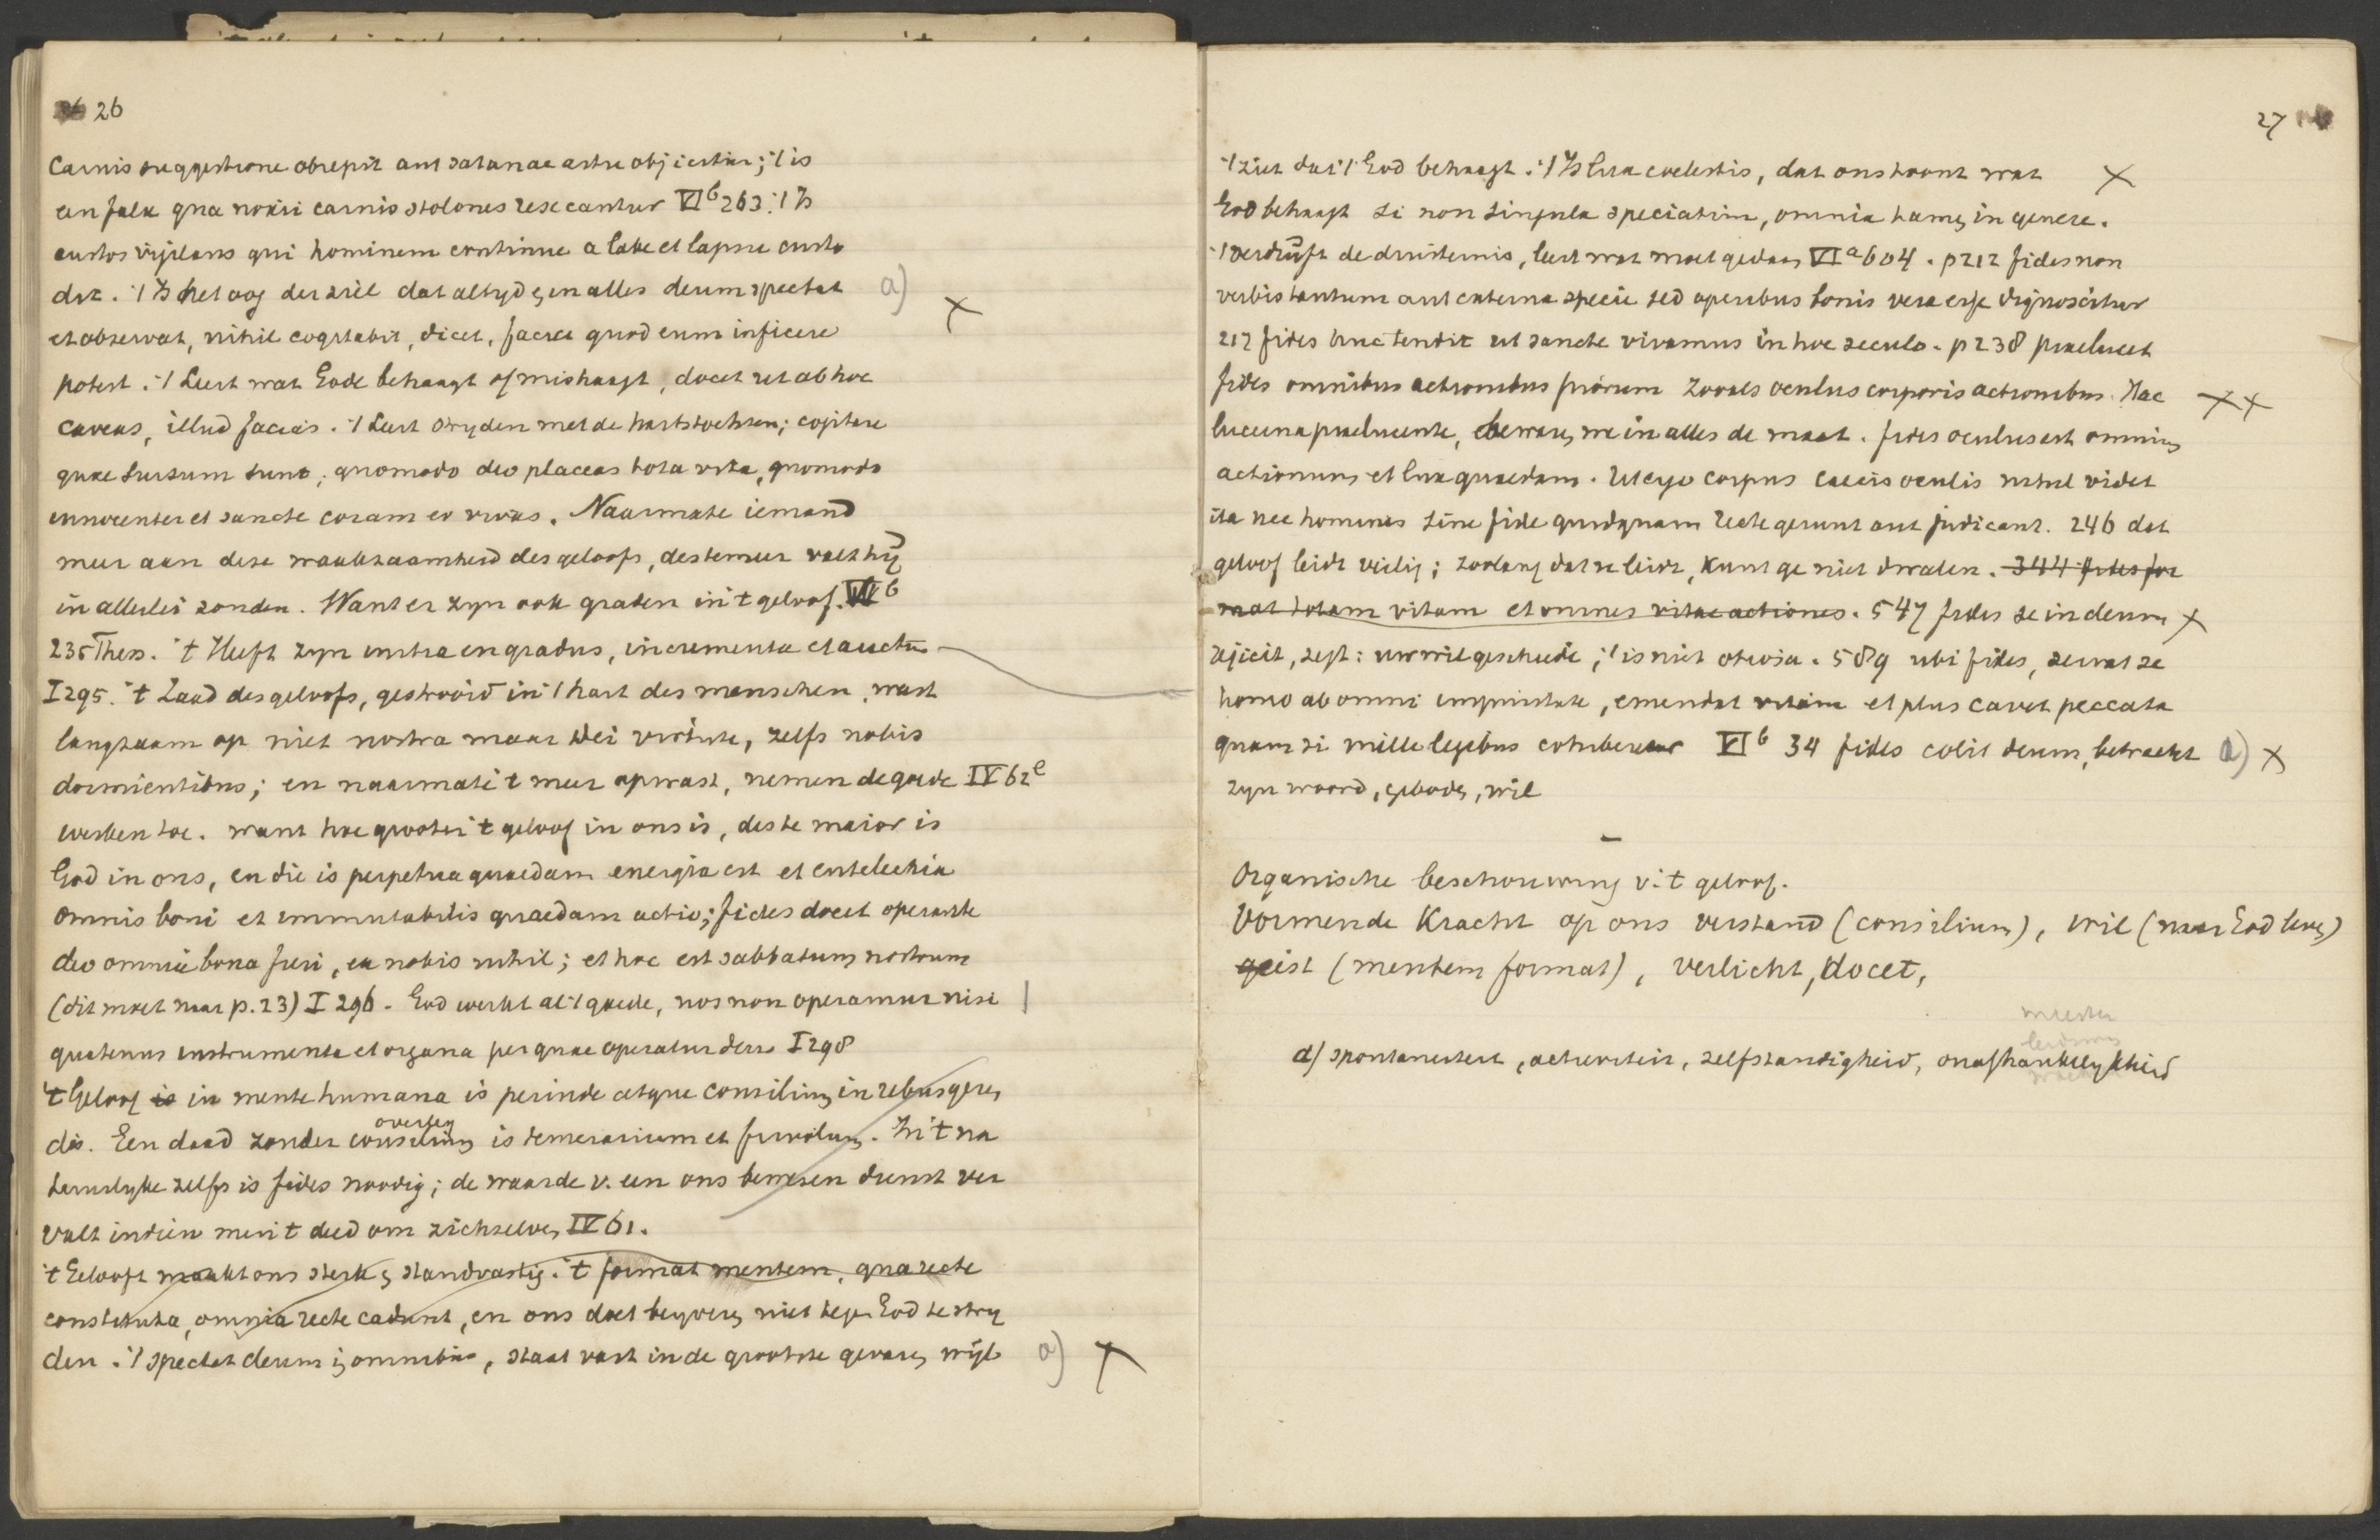 26
Carnis suggestione obrepit aut satanae astu objicitur; 't is
een falx qua noxii carnis stolones resecantur VI b 263. 't Is
custos vigilans qui hominem continue a labe et lapsu custo
dit. 't Is het oog der ziel dat altyd en in alles deum spectat a)
et observat, nihil cogitabit, dicet, faciet quod eum inficere X
potest. 't Leert wat Gode behaagt of mishaagt, docet ut ab hoc
caveas, illud facias. 't Leert stryden met de hartstochten; cogitare
quae sursum sunt, quomodo deo placeas tota vita, quomodo
innocenter et sancte coram eo vivas. Naarmate iemand
meer aan deze waakzaamheid des geloofs, des te meer valt hij
in allerlei zonden. Want er zyn ook graden in 't geloof. VI b
235 Thess. 't Heeft zyn initia en gradus, incrementa et auctus
I 295. 't Zaad des geloofs, gestrooid in 't hart des menschen, wast
langzaam op niet nostra maar Dei virtute, zelfs nobis
dormientibus; en naarmate 't meer opwast, nemen de goede IV 62 e
werken toe. want hoe grooter 't geloof in ons is, des te maior is
God in ons, en die is perpetua quaedam energia est et entelechia
omnis boni et immutabilis quaedam actio; fides docet operante
deo omnia bona fieri, ex nobis nihil; et hoc est sabbatum nostrum
(dit moet naar p. 23) I 296. God werkt al 't goede, nos non operamur nisi |
quatenus instrumenta et organa per quae operatur deus I 298
't Geloof is in mente humana is perinde atque consilium in rebus geren
dis. Een daad zonder consilium is temerarium et frivolum. In 't na
overleg
tuurlyke zelfs is fides noodig; de waarde v. een ons bewezen dienst ver
valt indien men 't deed om zichzelven IV 61.
't Geloof maakt ons sterk en standvastig. 't format mentem, qua recte
constituta, omnia recte cadunt, en ons doet beyveren niet tegen God te stry
den. 't spectat deum in omnibus, staat vast in de grootste gevaren wijl a) X
27
't ziet dat 't God behaagt. 't Is lux coelestis, dat ons toont wat X
God behaagt si non singula speciatim, omnia tamen in genere.
't verdrijft de duisternis, leert wat moet gedaan VI a 604. p 212 fides non
verbis tantum aut externa specie sed operibus bonis vera esse dignoscitur
217 fides huc tendit ut sancte vivamus in hoc seculo. p 238 praelucet
fides omnibus actionibus piorum zooals oculus corporis actionibus. Hac XX
lucerna praelucente, bewaren we in alles de maat. fides oculus est omnium
actionum et lux quaedam. Ut ergo corpus caecis oculis nihil videt
ita nec homines sine fide quidquam recte gerunt aut judicant. 246 dat
geloof leidt veilig; zoolang dat u leidt, kunt ge niet dwalen. 344 fides for
mat totam vitam et omnes vitae actiones. 547 fides se in deum X
rejicit, zegt: uw wil geschiede; 't is niet otiosa. 589 ubi fides, servat se
homo ab omni impuritate, emendat vitam et plus cavet peccata
quam si mille legibus cohiberetur VI b 34 fides colit deum, betracht a) X
zyn woord, geboden, wil
–
Organische beschouwing v. 't geloof.
Vormende Kracht op ons verstand (consilium), wil (naar God leven)
geist (mentem format), verlicht, docet,
meester
leidsman
a) spontaneiteit, activiteit, zelfstandigheid, onafhankelykheid